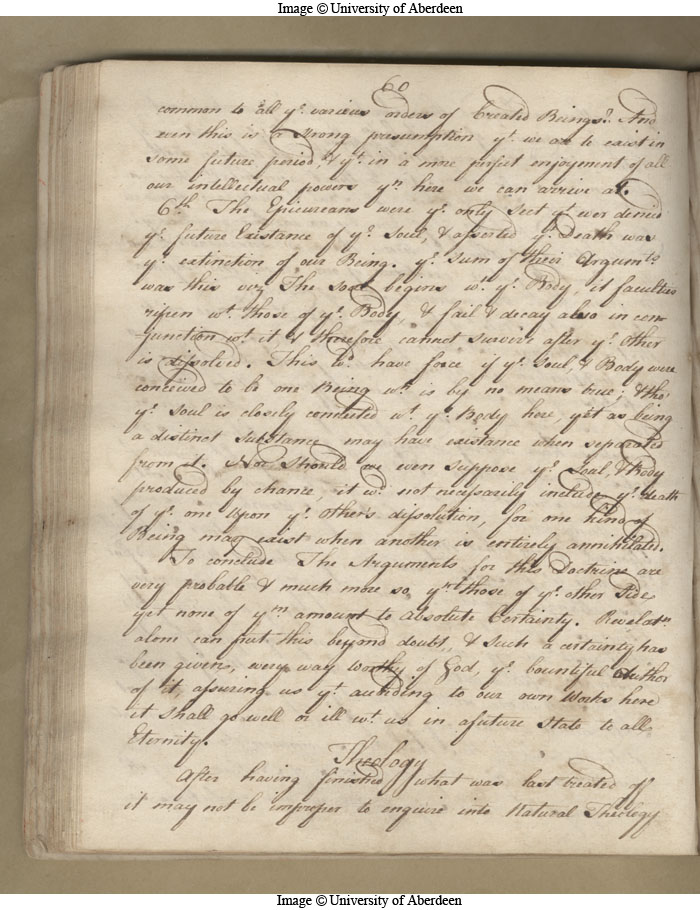 Image © University of Aberdeen
60
common to all ye. various orders of Created Beings? And
even this is a strong presumption yt. we are to exist in
some future period, & yt. in a more perfect enjoyment of all
our intellectual powers yn. here we can arrive at.
6th. The Epicureans were ye. only Sect yt ever denied
ye. future Existance of ye. Soul, & asserted yt. Death was
ye. extinction of our Being. ye. Sum of their Argumts
was this viz The soul begins wt. ye. Body, it faculties
ripen wt. those of ye. Body, & fail & decay also in con-
junction wt. it & therefore cannot survive after ye. Other
is dissolved. This wd. have force if ye. Soul, & Body were
conceived to be one Being wch. is by no means true; & tho'
ye. Soul is closely connected wt. ye. Body here, yet as being
a distinct substance may have existance when separated
from it. Nor should we even suppose ye. Soul, & Body
produced by chance, it wd. not necessarily include ye. death
of ye. one upon ye. Other's dissolution, for one kind of
Being may exist when another is entirely annihilated.
To conclude The Arguments for this Doctrine are
very probable & much more so, yn. those of ye. other Side
yet none of ym amount to Absolute Certainty. Revelatn.
alone can put this beyond doubt, & such a certainty has
been given, every way worthy of God, ye. bountiful Author
of it, assuring us yt. according to our own Works here
it shall go well or ill wt. us in a future State to all
Eternity.
Theology
After having finished what was last treated of
it may not be improper to enquire into Natural Theology
Image © University of Aberdeen